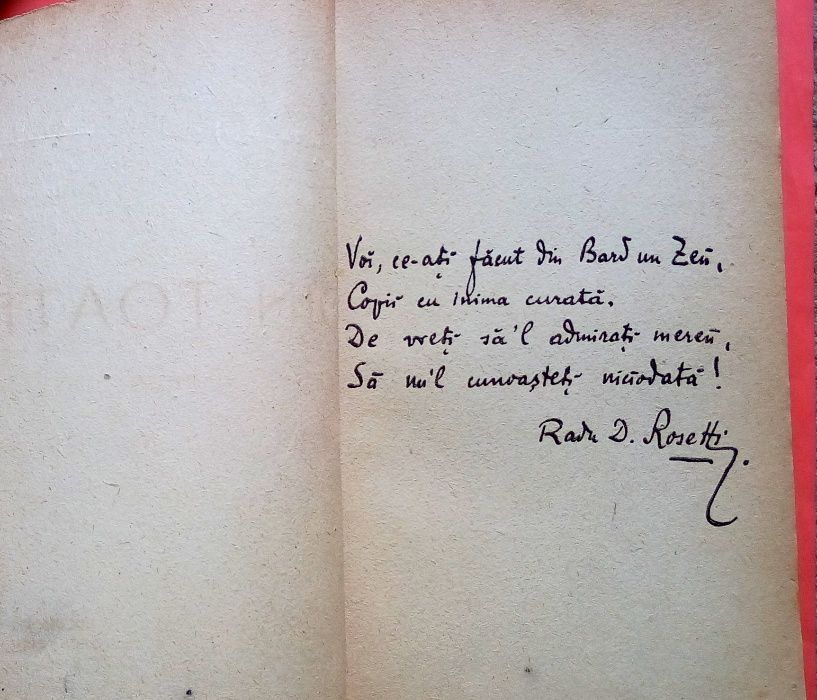 Voĭ, ce-ațĭ făcut din Bard un Zeŭ,
Copiĭ cu inima curată,
De vrețĭ să'l admirațĭ mereŭ,
Să nu'l cunoaștețĭ niciodată!
Radu D. Rosetti